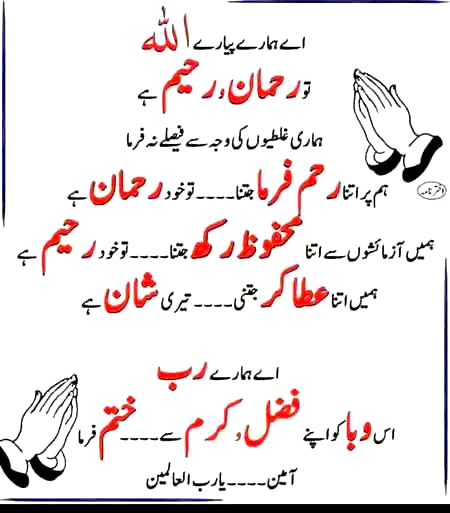 اے ہمارے پیارے اللہ
تو رحمان و رحیم ہے
ہماری غلطیوں کی وجہ سے فیصلے نہ فرما
ہم پر اتنا رحم فرما جتنا۔۔۔۔ تو خود رحمان ہے
ہمیں آزمائشوں سے اتنا محفوظ رکھ جتنا۔۔۔۔ تو خود رحیم ہے
ہمیں اتنا عطا کر جتنی۔۔۔۔ تیری شان ہے
اے ہمارے رب
اس وبا کو اپنے فضل و کرم سے۔۔۔۔ ختم فرما
آمین۔۔۔۔ یا رب العالمین